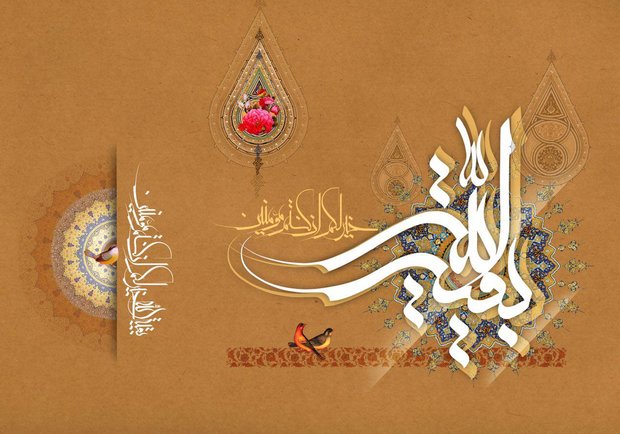 بقیة الله
خیر لکم ان کنتم مومنین
بقیة الله خیر لکم ان کنتم مومنین